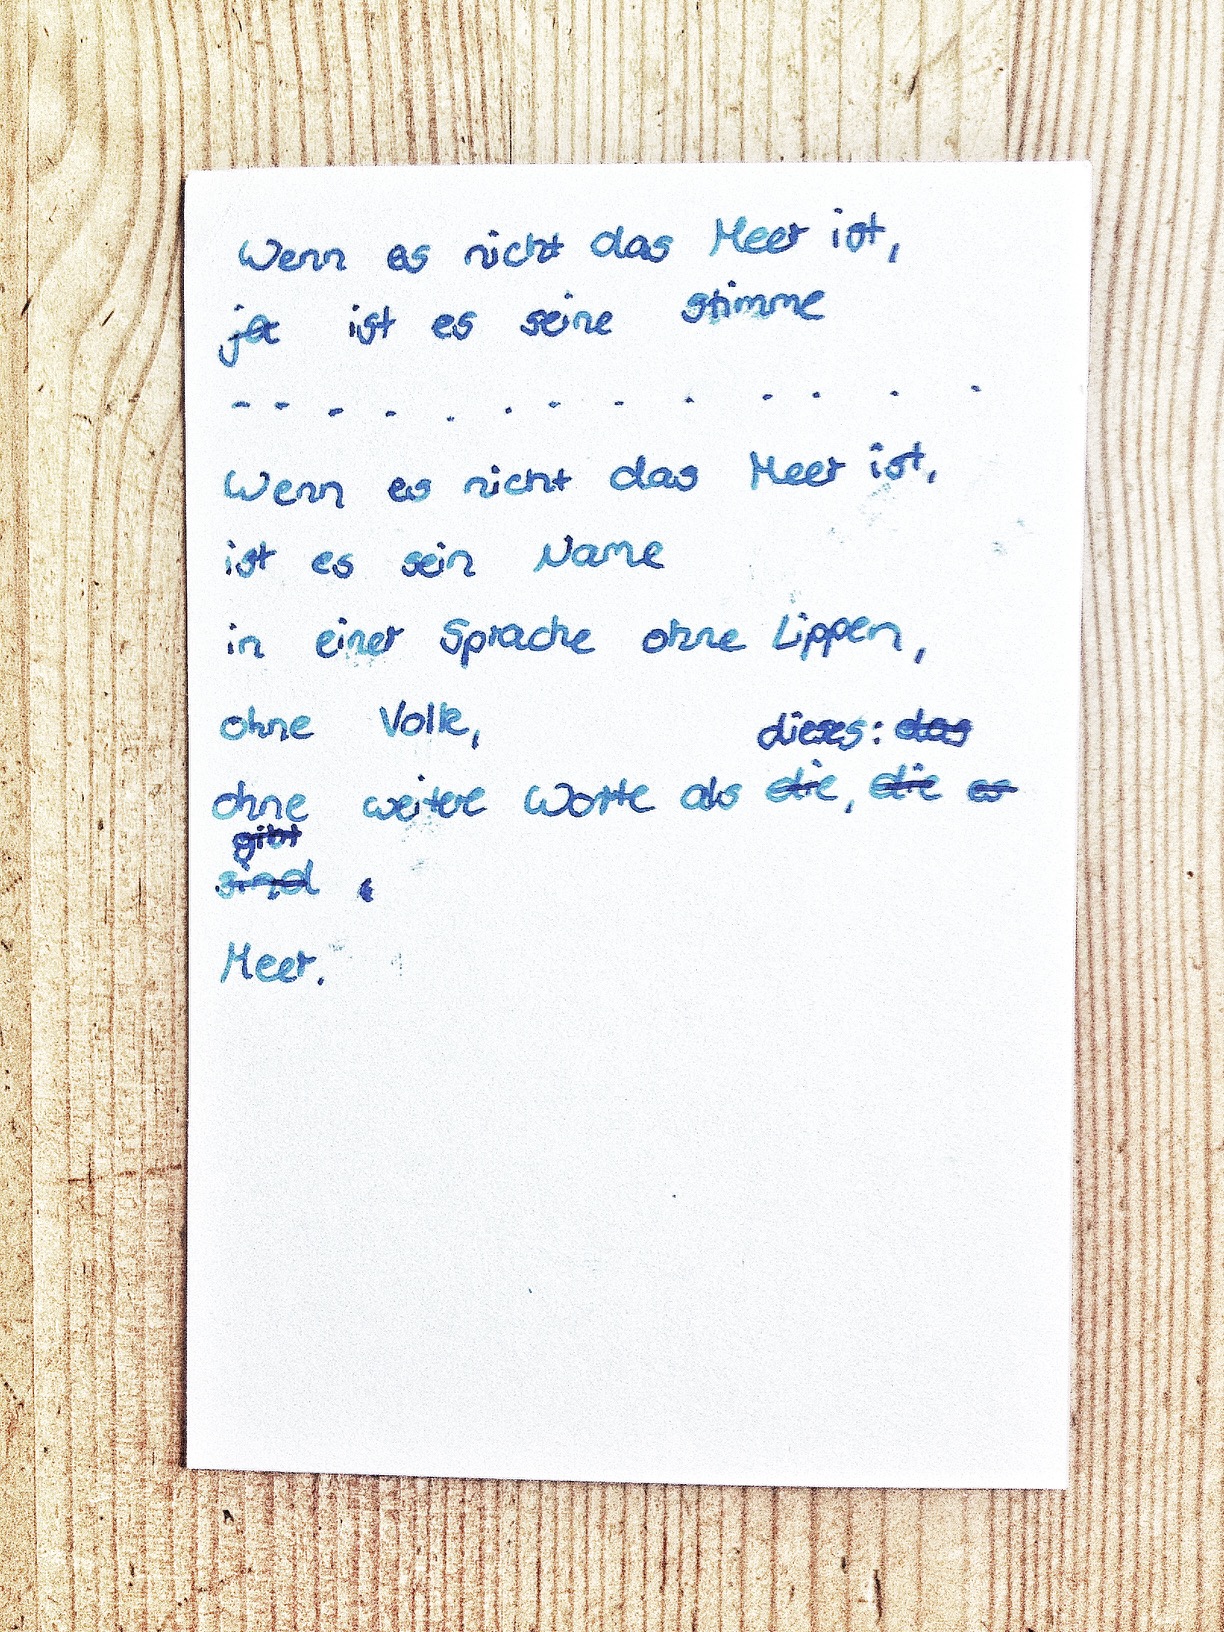 Wenn es nicht das Meer ist,
ja ist es seine stimme
- - - - . . - - - - - - -
Wenn es nicht das Meer ist,
ist es sein Name
in einer Sprache ohne Lippen,
ohne Volk,
dieses: das
ohne weitere Worte als die, die es
gibt
sind
Meer.